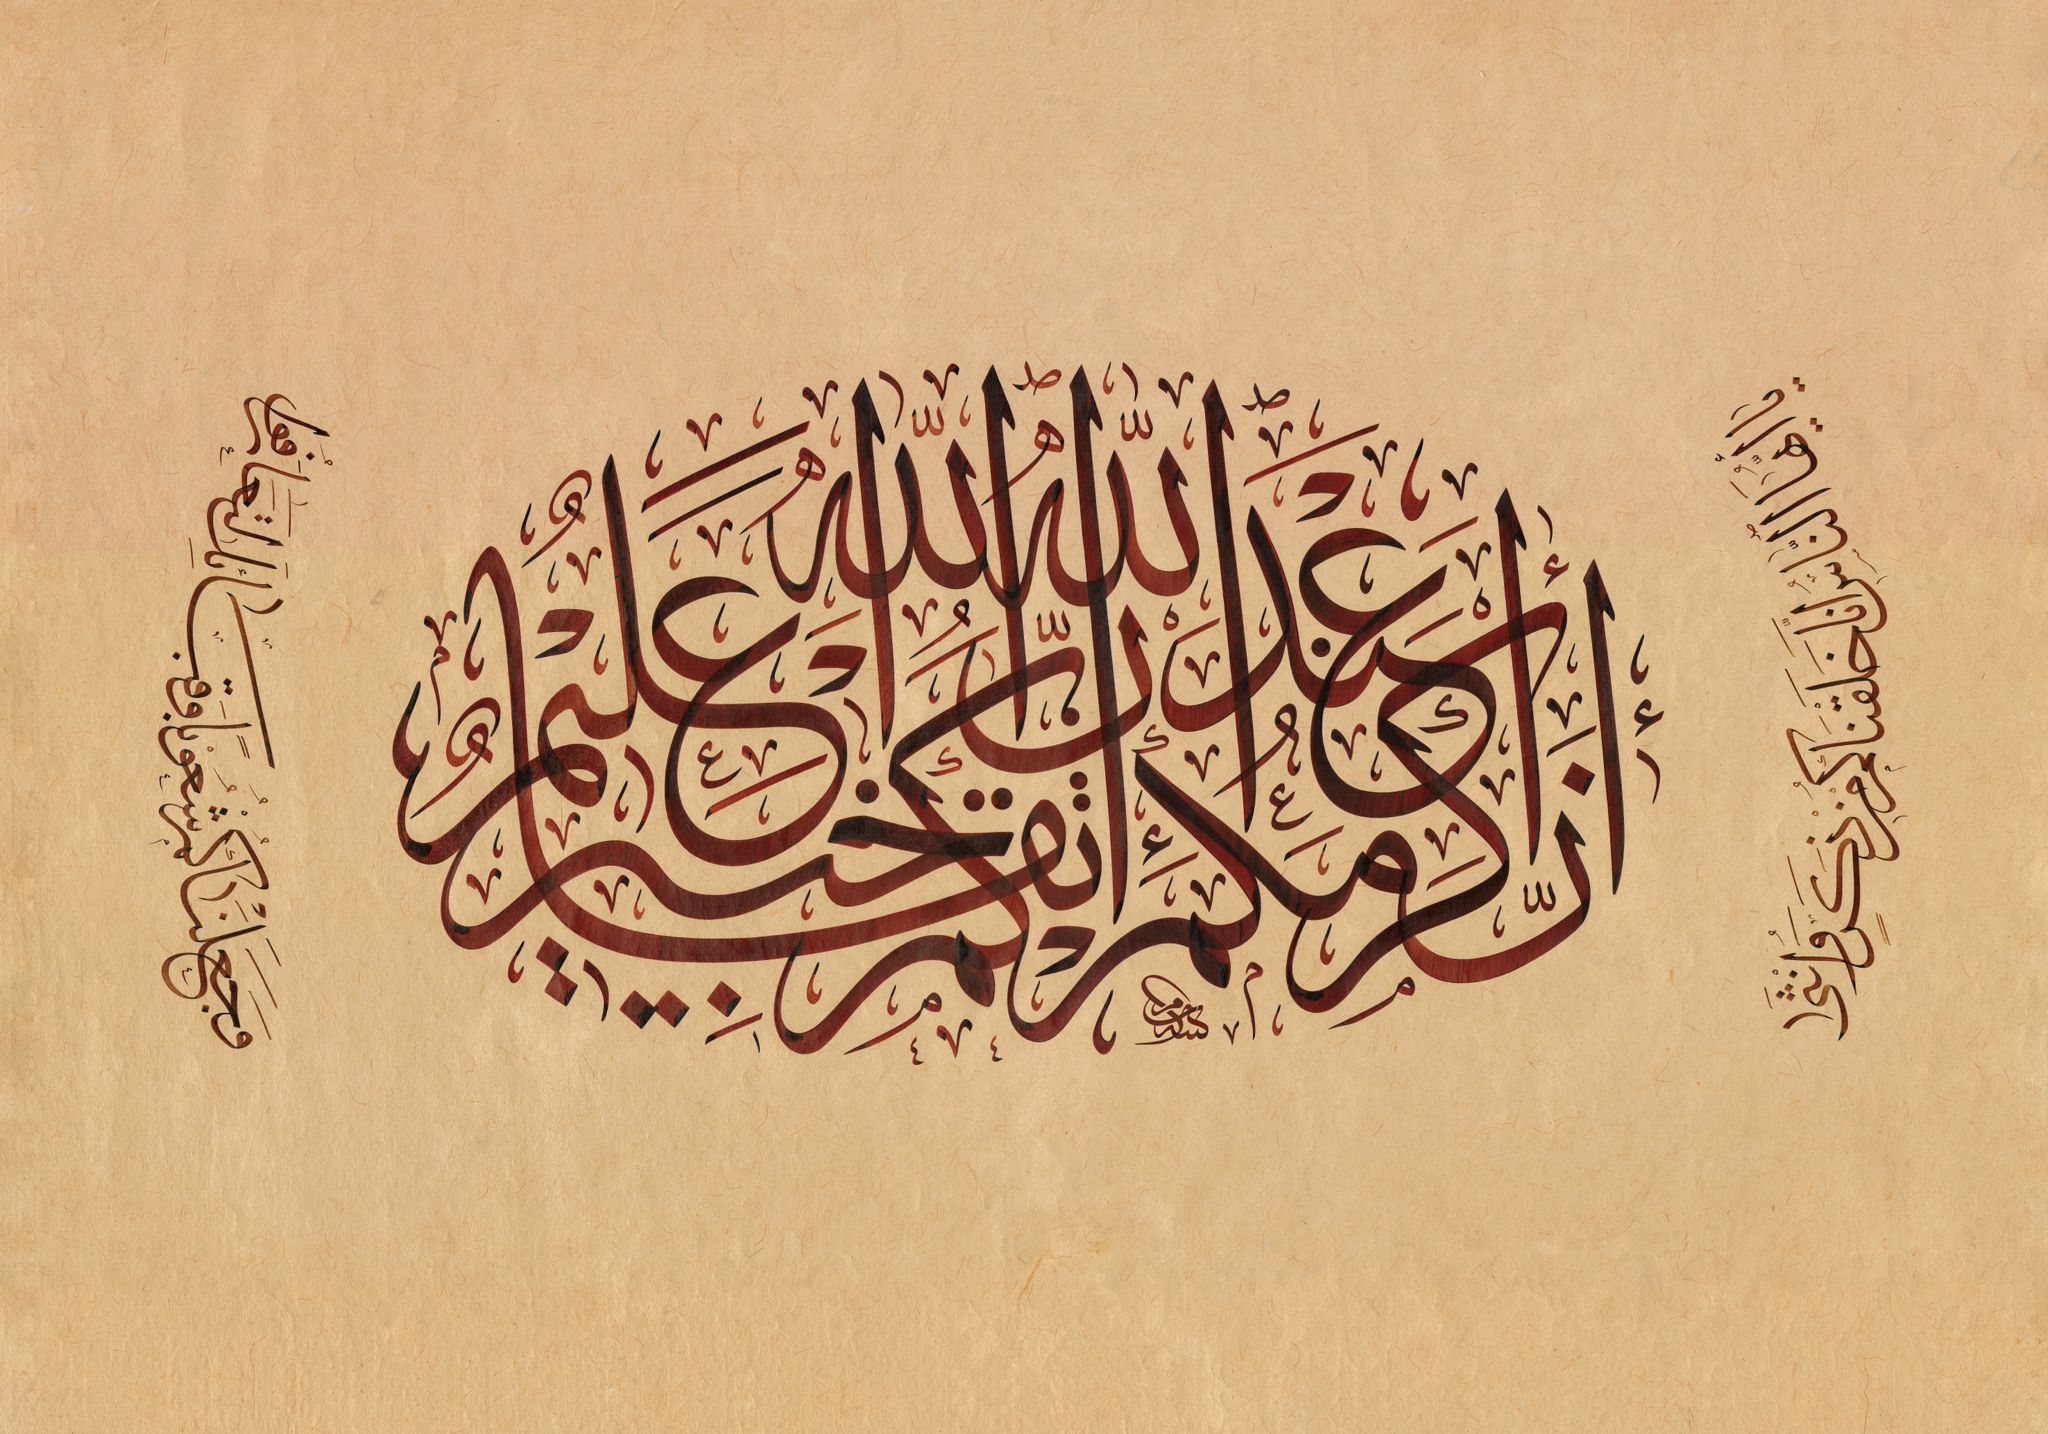 يَا أَيُّهَا النَّاسُ إِنَّا خَلَقْنَاكُمْ مِنْ ذَكَرٍ وَأُنْثَىٰ
وَجَعَلْنَاكُمْ شُعُوبًا وَقَبَائِلَ لِتَعَارَفُوا
إِنَّ أَكْرَمَكُمْ عِنْدَ اللَّهِ أَتْقَاكُمْ إِنَّ اللَّهَ عَلِيمٌ خَبِيرٌ